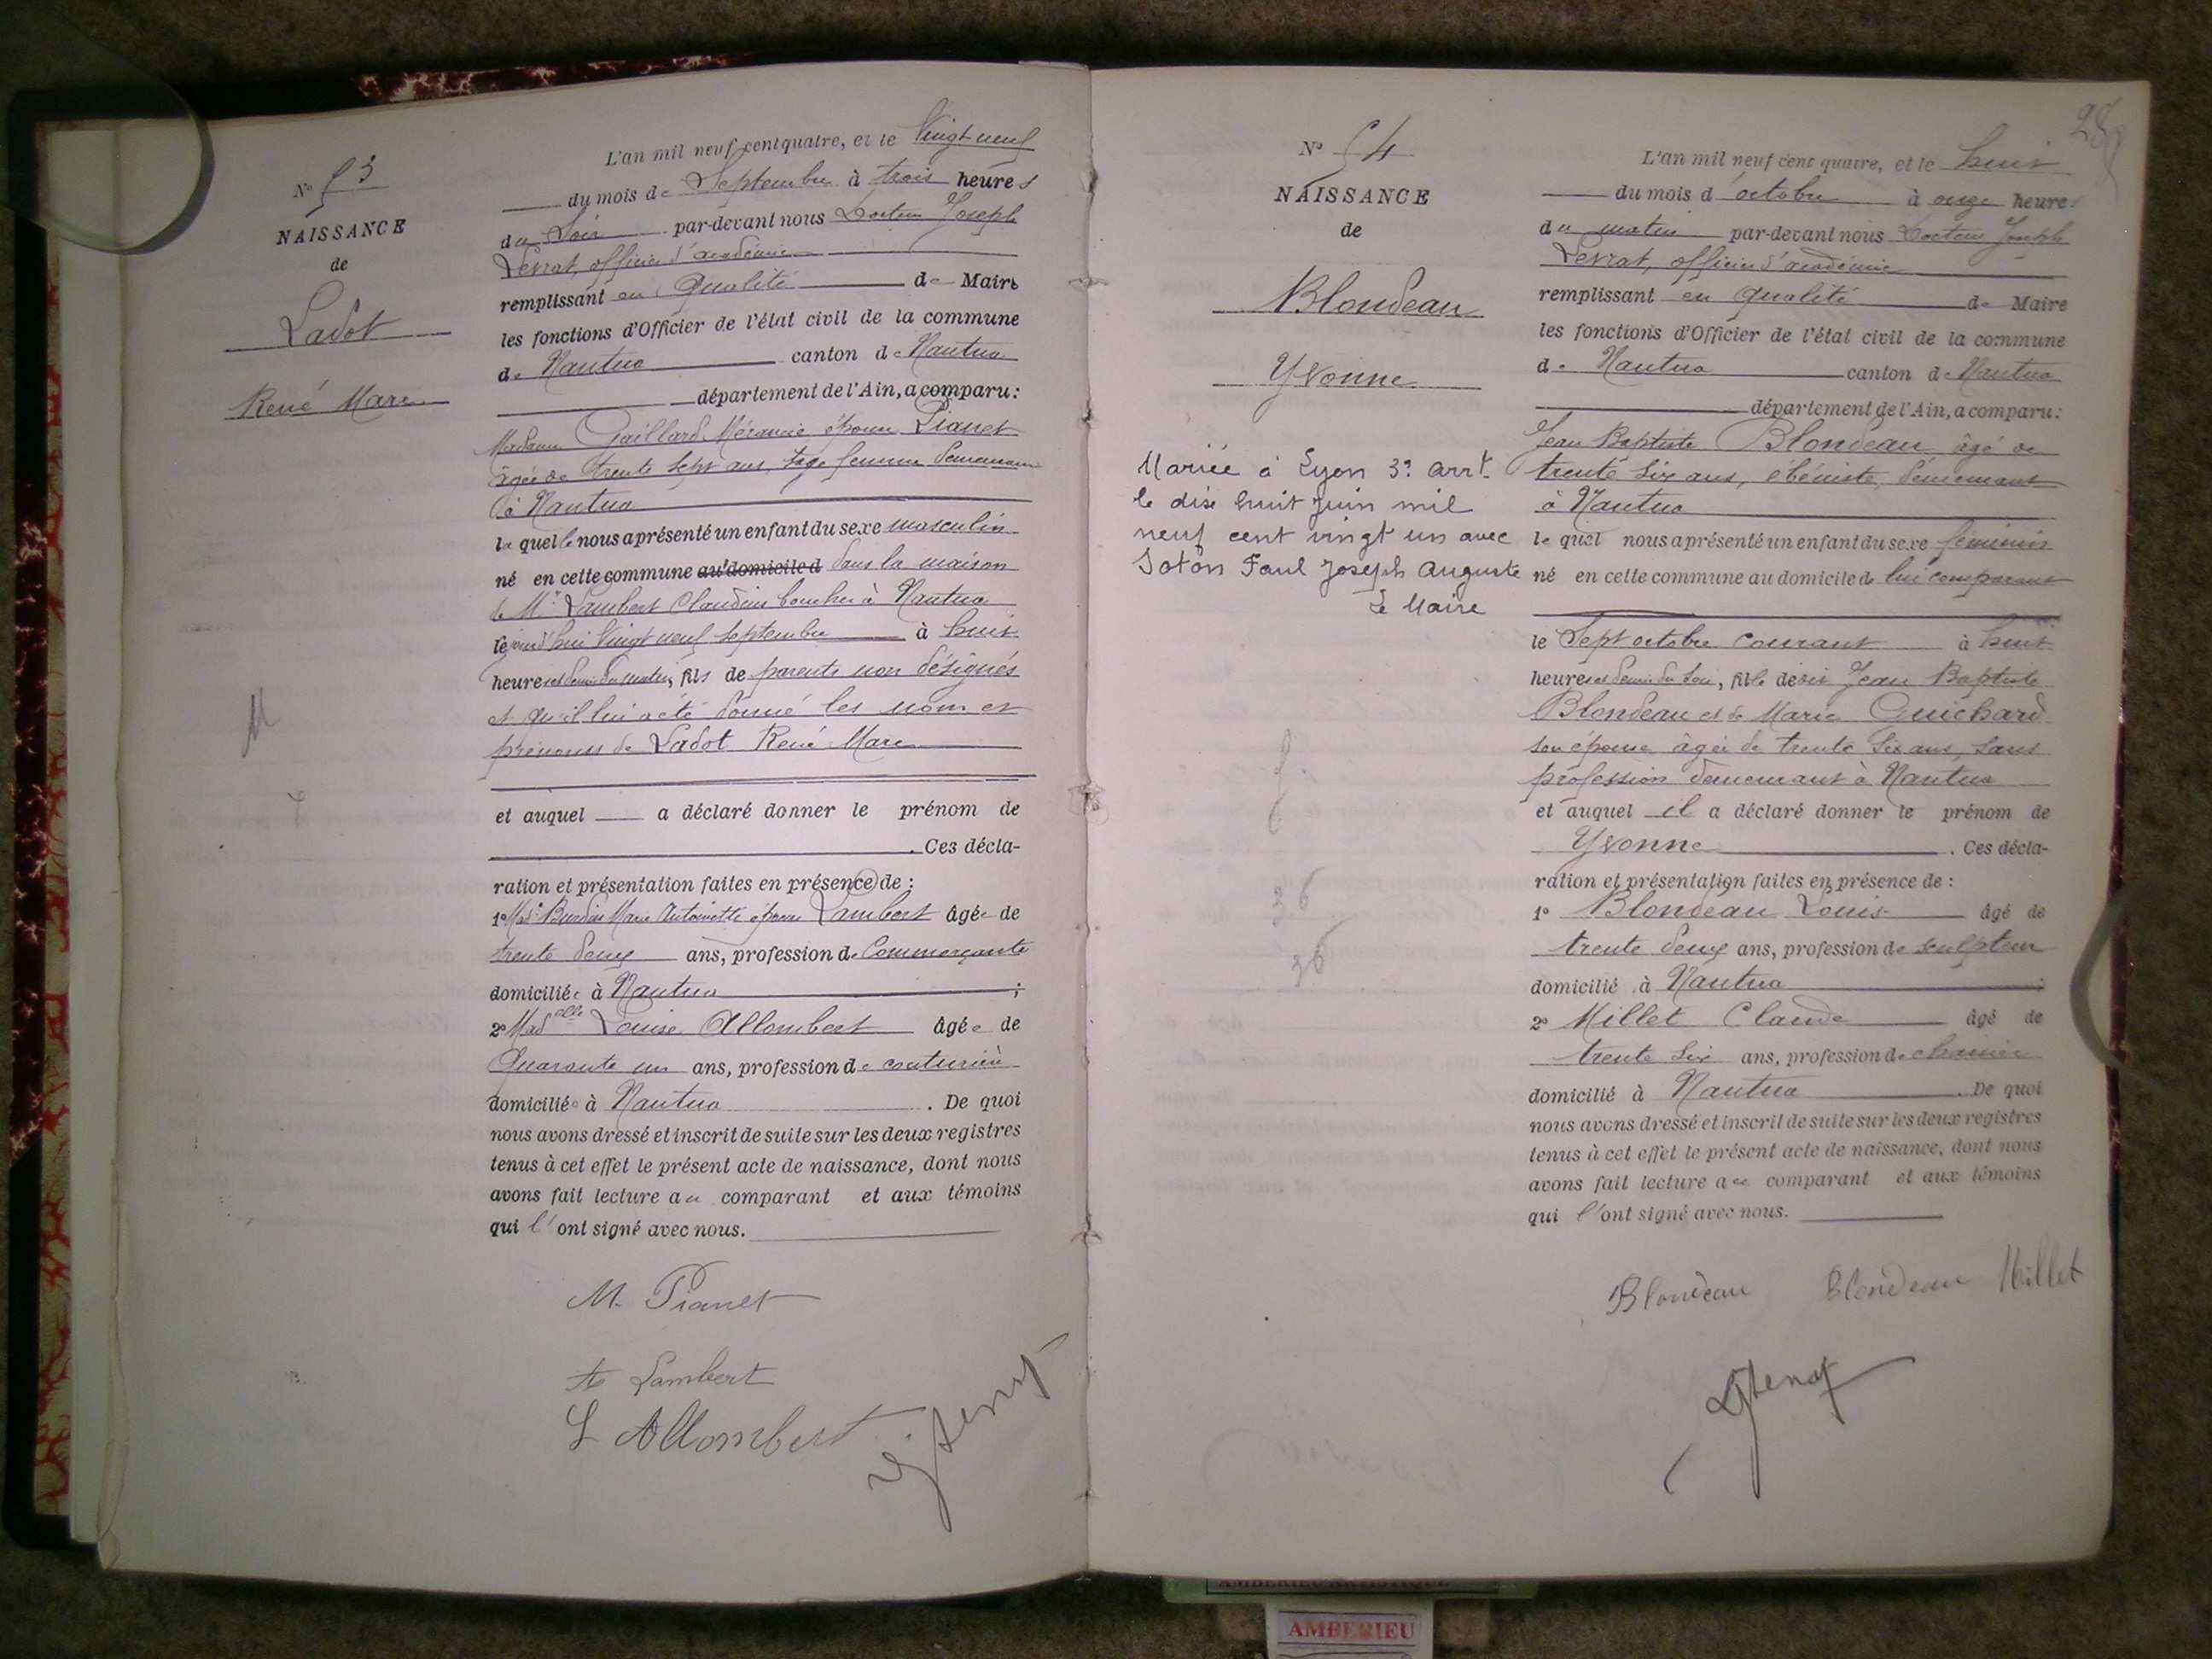 N° 53
NAISSANCE
de
Ladot
René Marc
L'an mil neuf cent quatre, et le Vingt neuf
du mois de Septembre à trois heures
du Soir par-devant nous Docteur Joseph
Levrat, officier d'académie
remplissant en Qualité de Maire
les fonctions d'Officier de l'état civil de la commune
de Nantua canton de Nantua
département de l'Ain, a comparu :
Madame Gaillard Mérancie épouse Pianet
âgée de trente sept ans, sage femme demeurant
à Nantua
laquelle nous a présenté un enfant du sexe masculin
né en cette commune au domicile d dans la maison
de Mr Lambert Claudius boucher à Nantua
le jourd'hui Vingt neuf septembre à huit
heures et demie du matin, fils de parents non désignés
et qu'il lui a été donné les nom et
prénoms de Ladot René Marc
et auquel a déclaré donner le prénom de
. Ces décla-
ration et présentation faites en présence de :
1° Marie Antoinette épouse Lambert âgée de
trente deux ans, profession de Commerçante
domiciliée à Nantua ;
2° Madelle Louise Allombert âgée de
Quarante un ans, profession de couturière
domiciliée à Nantua . De quoi
nous avons dressé et inscrit de suite sur les deux registres
tenus à cet effet le présent acte de naissance, dont nous
avons fait lecture au comparant et aux témoins
qui l'ont signé avec nous.
M. Pianet
Lambert
L Allombert
M
28
N° 54
NAISSANCE
de
Blondeau
Yvonne
Mariée à Lyon 3e arrt.
le dix huit Juin mil
neuf cent vingt un avec
Soton Paul Joseph Auguste
Le Maire
f
36
36
L'an mil neuf cent quatre, et le huit
du mois d'octobre à onze heures
du matin par-devant nous Docteur Joseph
Levrat, officier d'académie
remplissant en qualité de Maire
les fonctions d'Officier de l'état civil de la commune
de Nantua canton de Nantua
département de l'Ain, a comparu :
Jean Baptiste Blondeau âgé de
trente six ans, ébéniste, demeurant
à Nantua
lequel nous a présenté un enfant du sexe féminin
né en cette commune au domicile de lui comparant
le Sept octobre courant à huit
heures et demie du soir, fille de Jean Baptiste
Blondeau et de Marie Guichard
son épouse âgée de trente six ans, sans
profession demeurant à Nantua
et auquel il a déclaré donner le prénom de
Yvonne . Ces décla-
ration et présentation faites en présence de :
1° Blondeau Louis âgé de
trente deux ans, profession de sculpteur
domicilié à Nantua ;
2° Millet Claude âgé de
trente six ans, profession de chaisier
domicilié à Nantua . De quoi
nous avons dressé et inscrit de suite sur les deux registres
tenus à cet effet le présent acte de naissance, dont nous
avons fait lecture au comparant et aux témoins
qui l'ont signé avec nous.
Blondeau Blondeau Millet
AMBERIEU